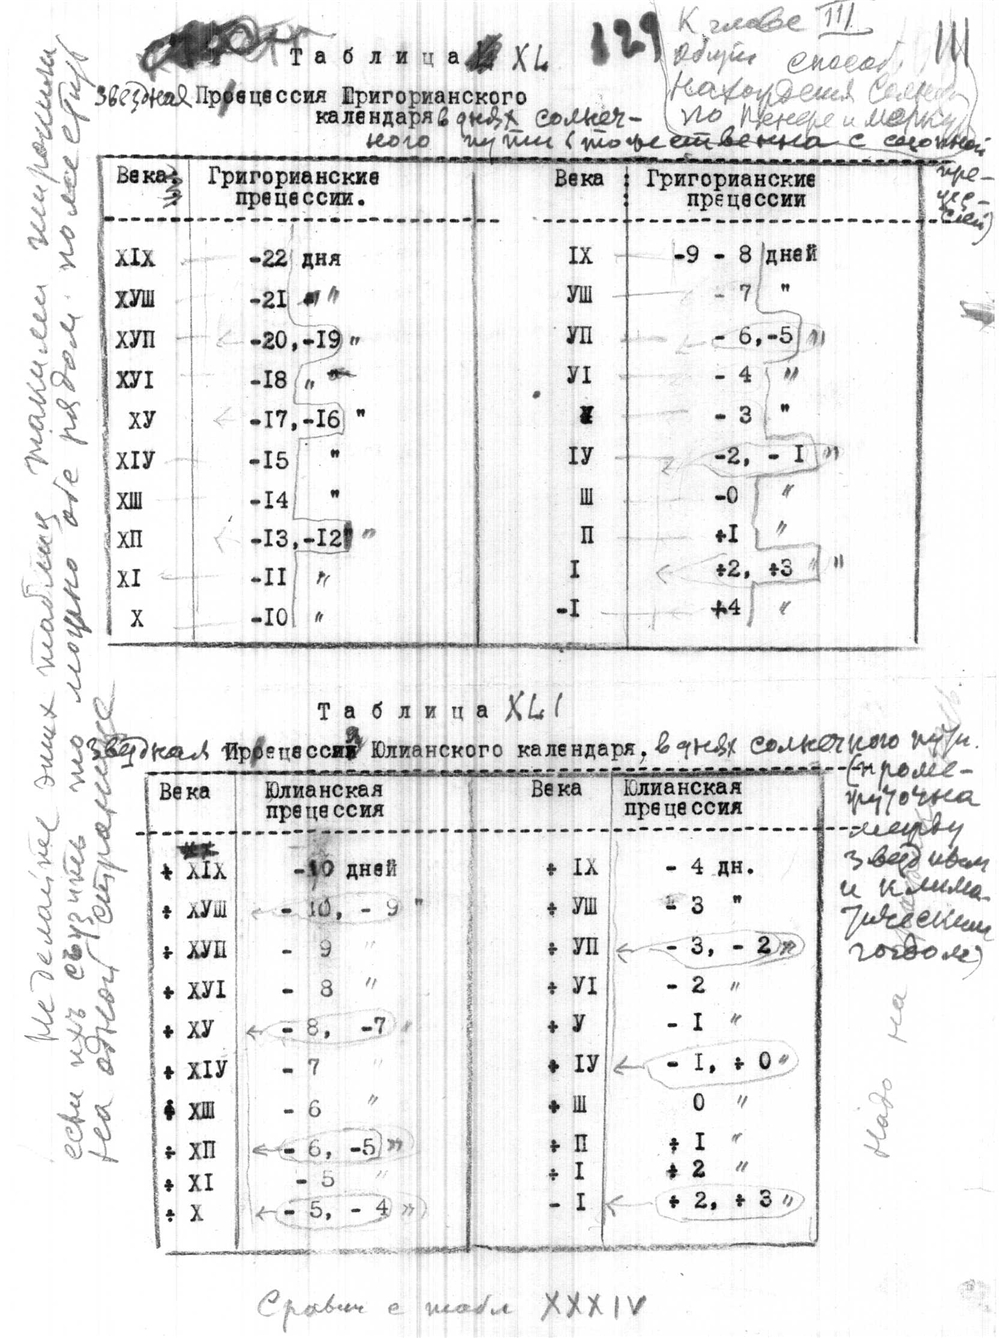 Таблица XL
129
К главе III
Общий способ
нахождения Солнца
по Венере и Меркур
III
Звездная Процессия Григорианского
календаря в днях солнеч-
ного пути (тожественна с сезонной
пре-
цес-
сией)
Века: Григорианские прецессии. Века : Григорианские прецессии
XIX -22 дня IX -9 - 8 дней
ХУШ -21 " УШ - 7 "
ХУП -20,-19 " УП - 6,-5 "
ХУI -18 " УI - 4 "
ХУ -17,-16 " У - 3 "
ХIУ -15 " IУ -2, - I "
ХШ -14 " Ш -0 "
ХП -13,-12 " П +I "
XI -II " I +2, +3 "
X -10 " -I +4 "
Таблица XLI
Звездная Процессия Юлианского календаря, в днях солнечного пути.
(проме-
жуточна
между
звездным
и клима-
тическим
годом)
Века Юлианская прецессия Века Юлианская прецессия
+ XIX -10 дней + IX - 4 дн.
+ ХУШ - 10, - 9 " + УШ - 3 "
+ ХУП - 9 " + УП - 3, - 2 "
+ ХУI - 8 " + УI - 2 "
+ ХУ - 8, -7 " + У - I "
+ ХIУ - 7 " + IУ - I, + 0 "
+ ХШ - 6 " + Ш 0 "
+ ХП - 6, -5 " + П + I "
+ XI - 5 " + I + 2 "
+ X - 5, - 4 " - I + 2, + 3 "
Не делайте этих таблиц такими широкими
если их сузить то можно обе рядом поместить
на одной странице
Надо на
Сравни с табл XXXIV